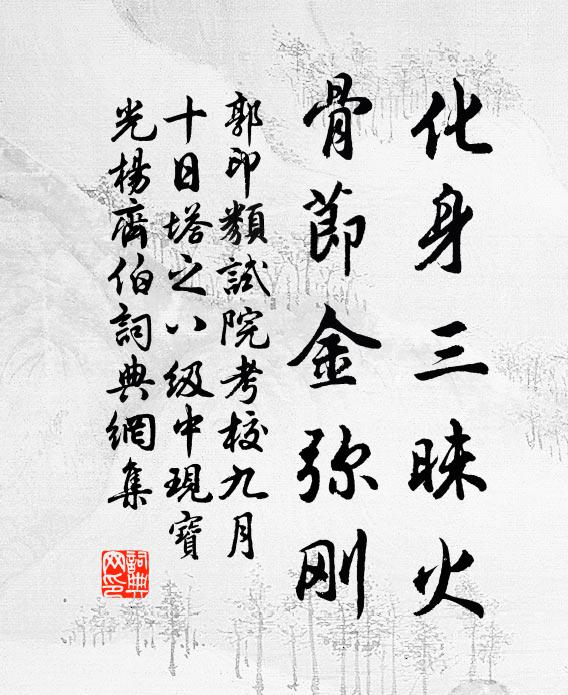 化身三昧火
骨節金弥刚
郭印類試院考校九月
十日塔之八级中現寶
光楊齊伯詞典網集
詞典
网印